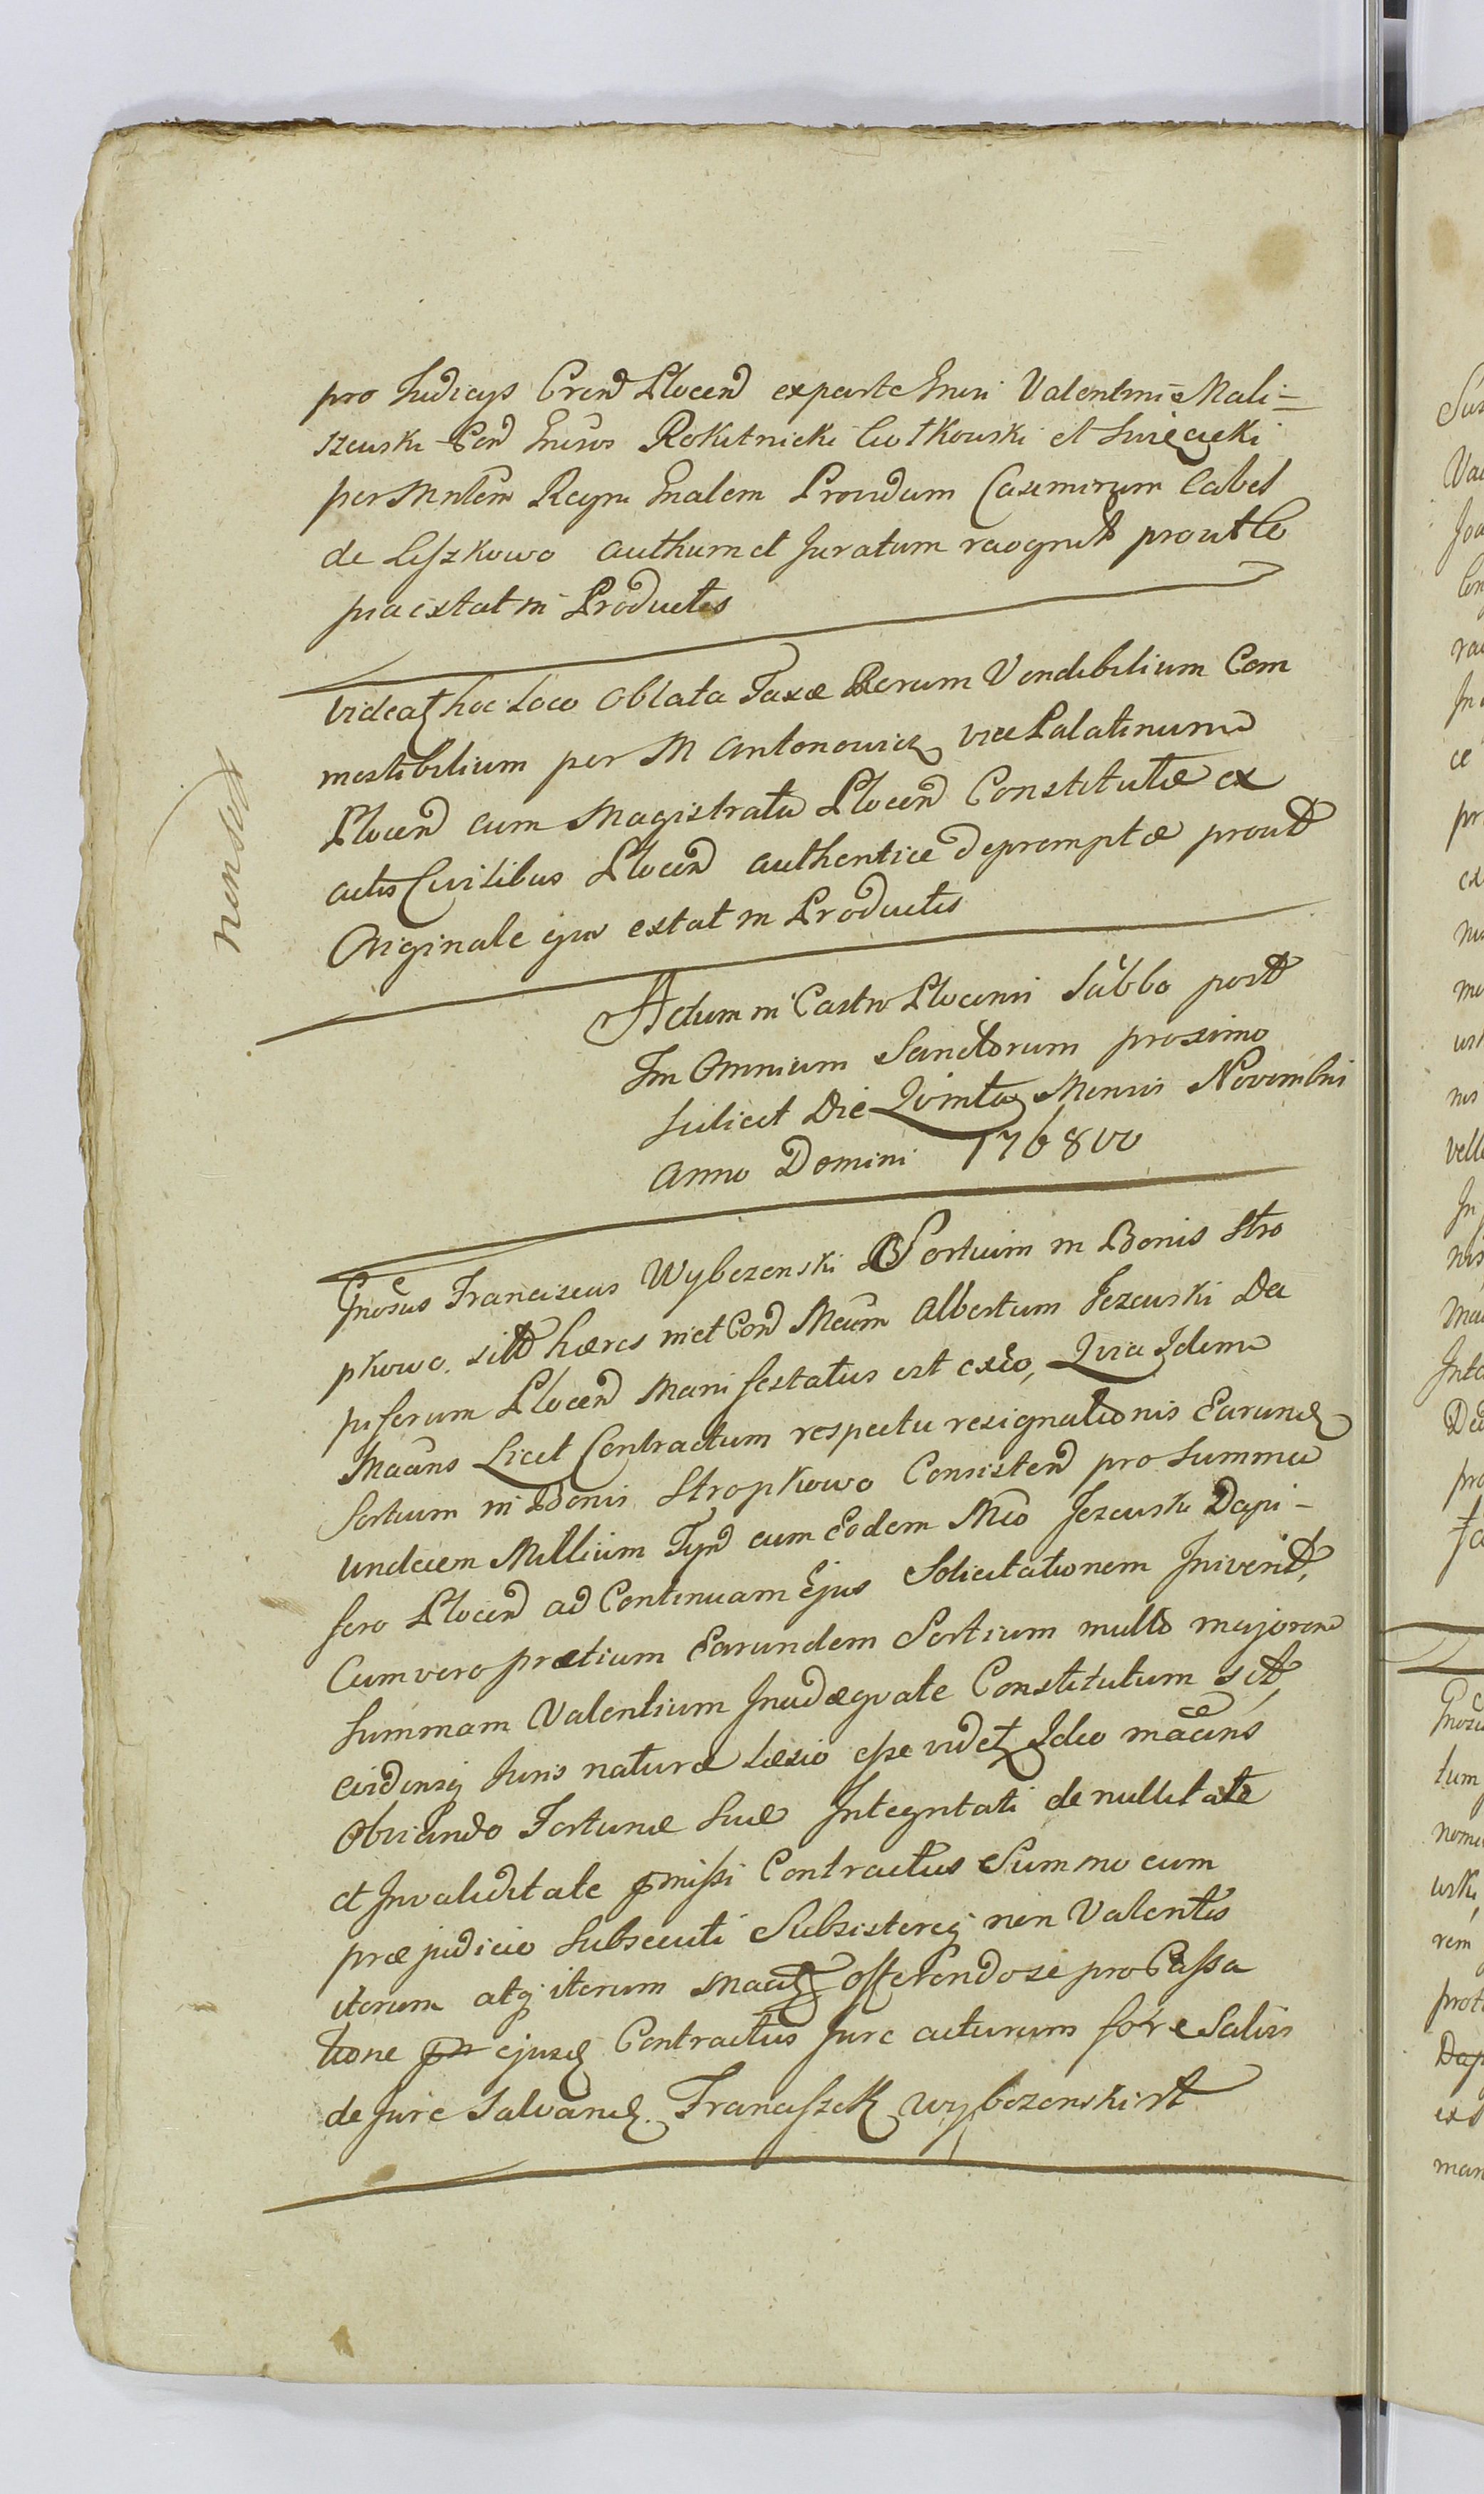 pro Judicys Cren̄d Plocen̄d ex parte Gnẽri Valentini Mali-
szewski Con̄d Gneros Rokitnicki Cutkowski et Swięcicki
per Mnlem Regni Gnalem Providum Casimirum Cabel
de Leszkowo authum et Juratum recognit prout Co
pia extat in Productis
Videat hoc Loco Oblata Taxæ Rerum Vendibilium Com
mestibilium per M Antonowicz vice Palatinum
Plocen̄d cum Magistratu Plocen̄d Constitutæ ex
actis Civilibus Plocen̄d authentice depromptæ prout
Originale ejus extat in Productis
nenset
Actum in Castro Plocensi Sabbo post
Fm Omnium Sanctorum proximo
scilicet Die Quinta Mensis Novembris
Anno Domini 1768vo
Gnosus Franciscus Wybczenski Sortium in Bonis Stro
pkowo sitt hæres met Con̄d Mcum Albertum Jezewski Da
piferum Plocen̄d Manifestatus est exeo, Quia Idem
Maāns Licet Contractum respectu resignationis Earund
Sortium in Bonis Stropkowo Consisten̄d pro Summa
undecem Millium Tyn̄d cum Eodem Mco Jezewski Dapi-
fero Plocen̄d ad Continuam Ejus Solicitationem Iniverit,
Cum vero prætium Earundem Sortium multo majorem
Summam Valentium Inadæqvate Constitutum sit,
eidemq Juris naturæ Læsio esse videt Ideo maāns
Obviando Fortunæ Suæ Integritati de nullitate
et Invaliditate pmissi Contractus Summo cum
præjudicio Subsecuti Subsistereq non Valentis
iterum atq iterum Maāt offerendo se pro Cassa
tione ejusd Contractus Jure acturum fore Salvis
de Jure Salvand. Franciszek Wybczenski rt